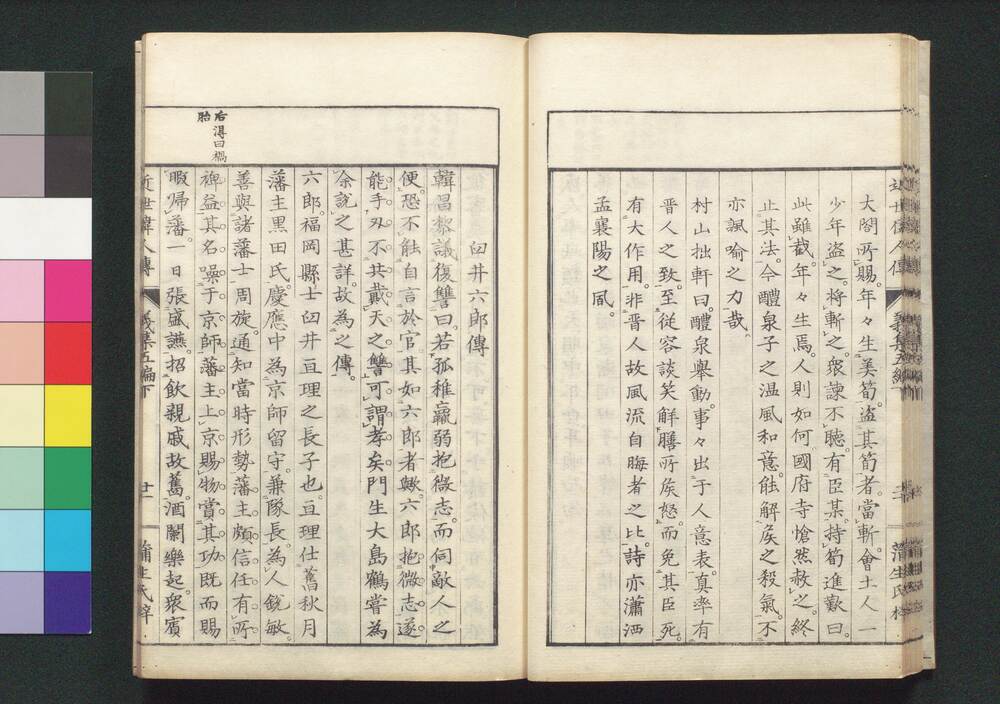 大閤所賜。年々生美筍。盗其筍者當斬。會土人一
少年盗之。將斬之。衆諫不聽。有臣某。持筍進歎曰。
此雖截。年々生焉。人則如何。國府寺愴然赦之。終
止其法。今醴泉子之温風和意。能解矦之殺氣。不
亦諷喩之力哉。
村山拙軒曰。醴泉舉動。事々出于人意表。真率有
晋人之致。至從容談笑。解膳所矦怒。而免其臣死。
有大作用。非晋人故風流自晦者之比。詩亦瀟洒
孟襄陽之風。
臼井六郎傳
韓昌黎議復讐曰。若孤稚羸弱。抱微志。而伺敵人之
便。恐不能自言於官。其如六郎者歟。六郎抱微志。遂
能手刃不共戴天之讐。可謂孝矣。門生大島鶴嘗為
余説之甚詳。故為之傳。
六郎。福岡縣士臼井亘理之長子也。亘理仕舊秋月
藩主黒田氏。慶應中為京師留守。兼隊長。為人鋭敏。
善與諸藩士周旋。通知當時形勢。藩主頗信任。有所
裨益。其名噪于京師。藩主上京。賜物賞其功。既而賜
暇帰藩。一日張盛讌。招飲親戚故舊。酒闌樂起。衆賓
后得曰禍
胎
近世偉人傳
義集五編下
廿一
蒲生氏梓